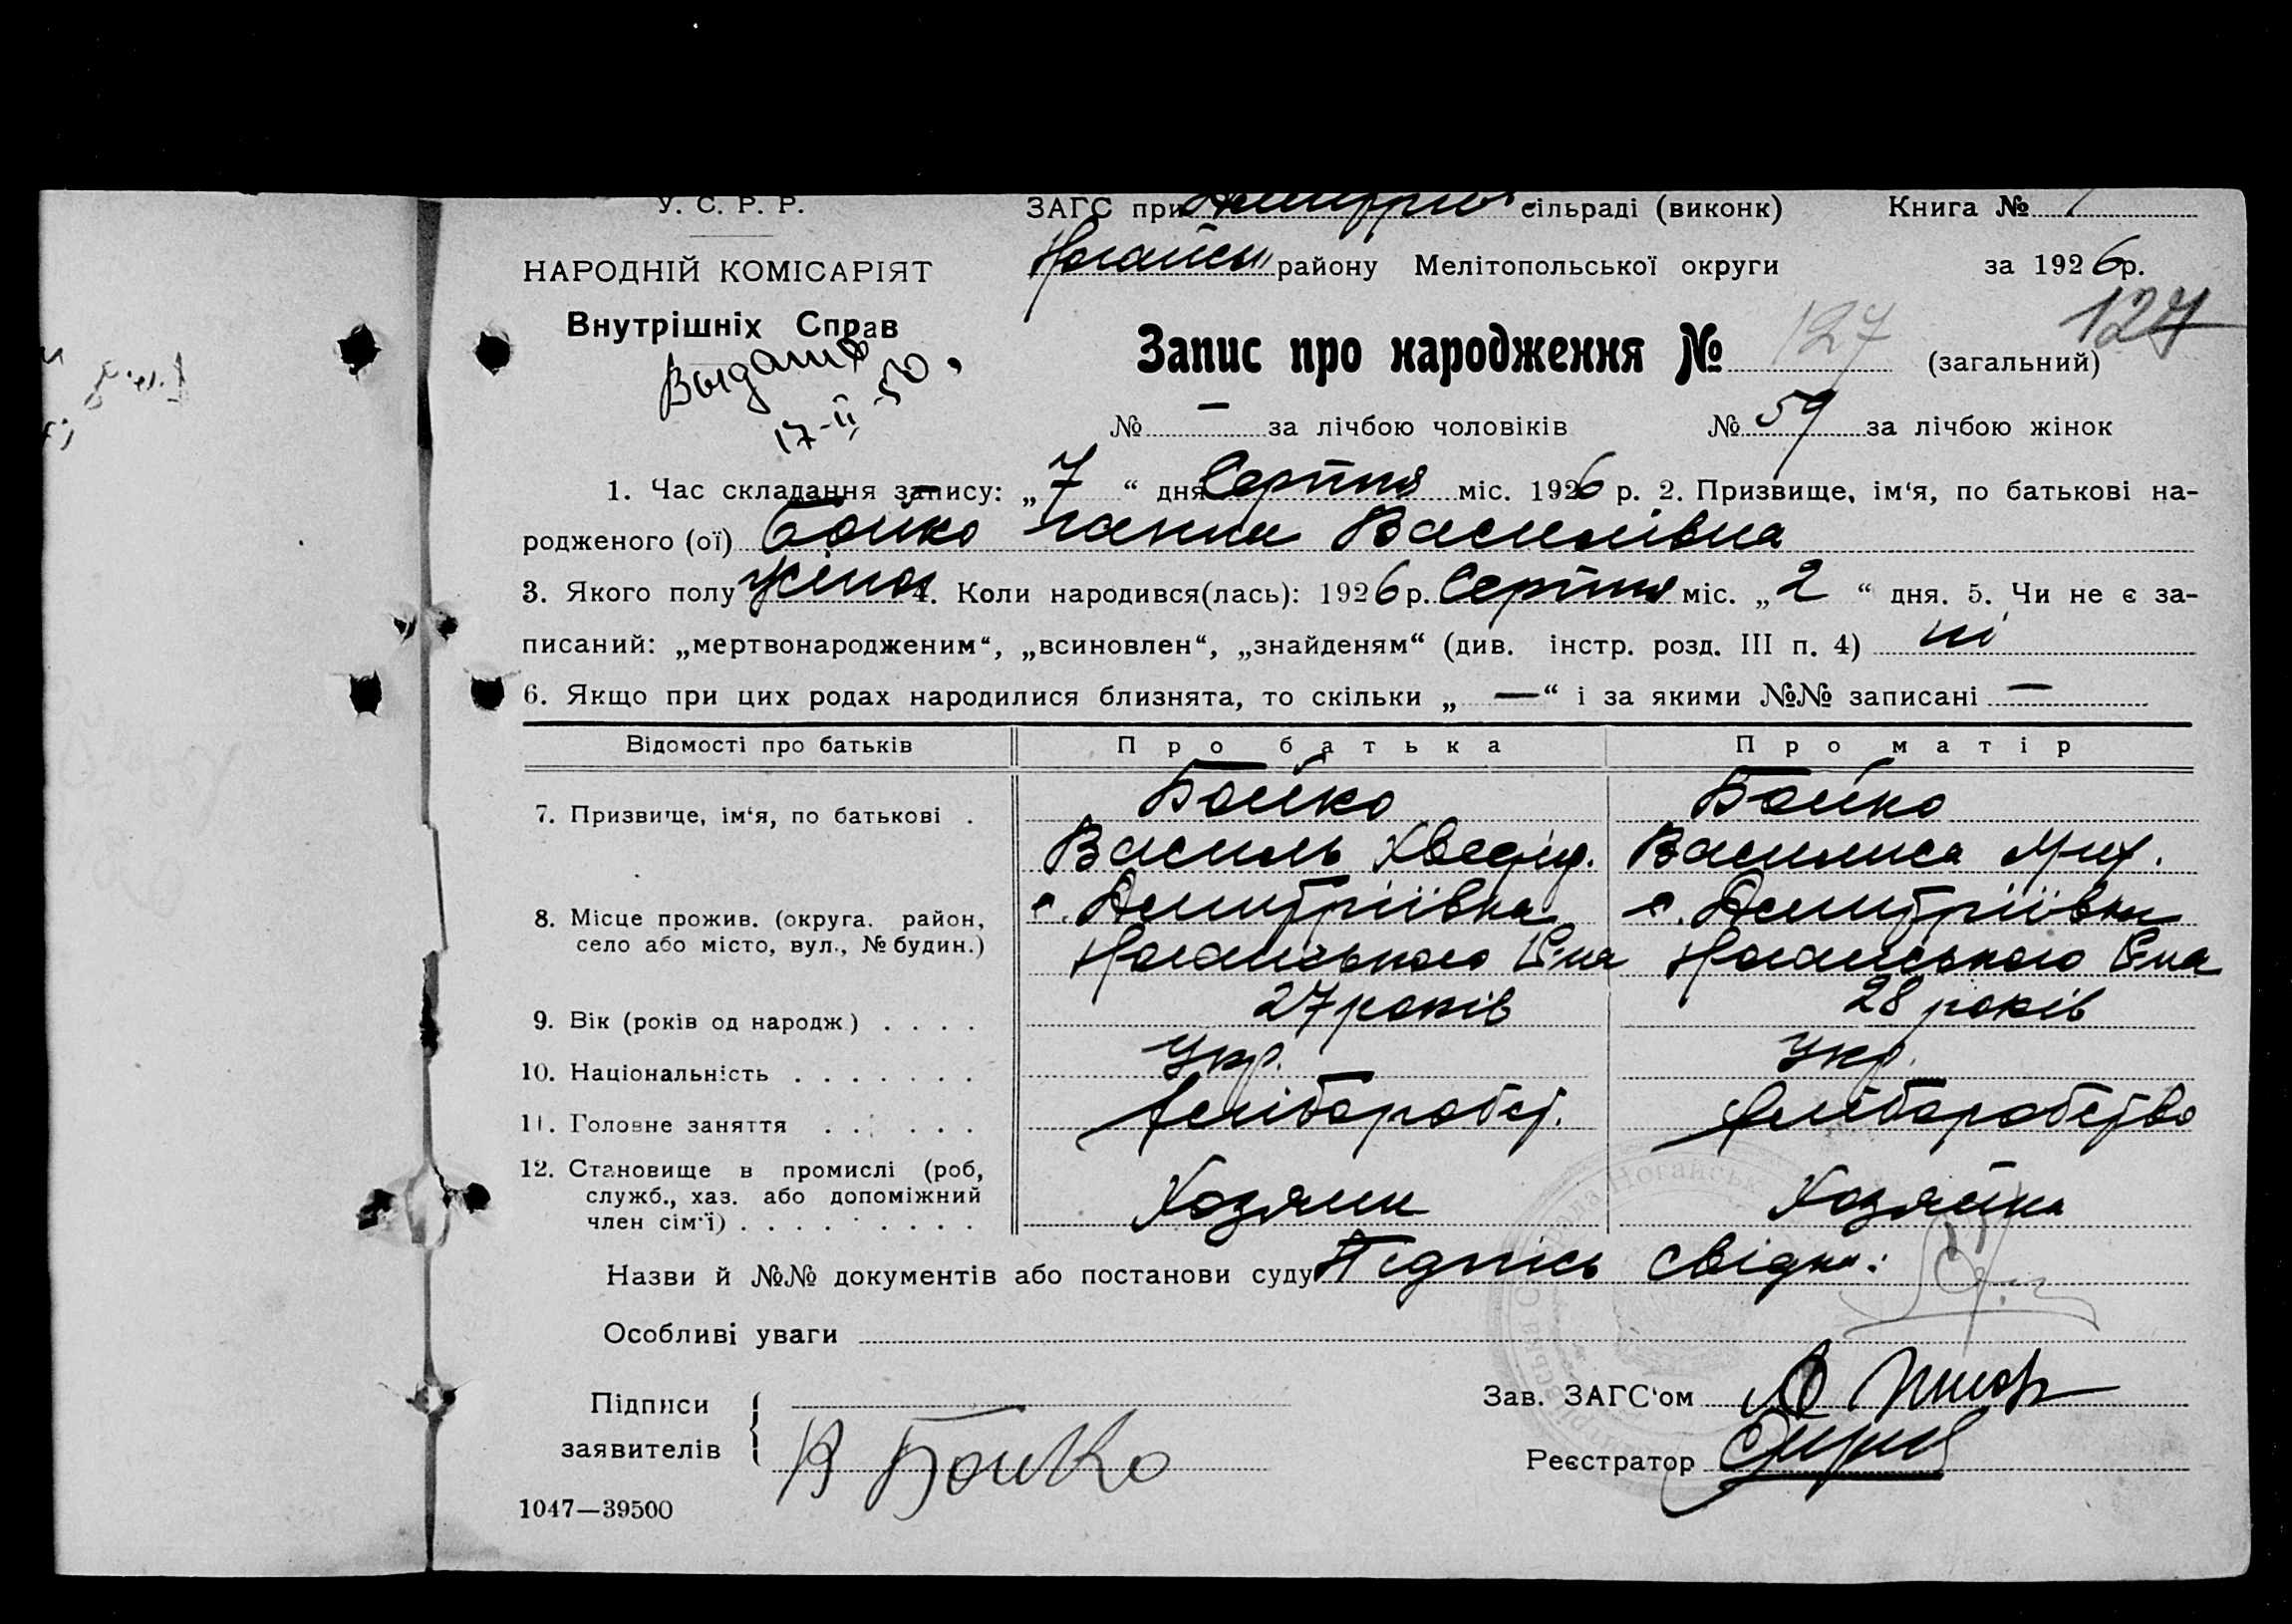 У. С. Р. Р.
НАРОДНІЙ КОМІСАРІЯТ
Внутрішніх Справ
17-II-50
ЗАГС при сільраді (виконк) Книга №
Ногайськ району Мелітопольської округи за 1926 р.
127
Запис про народження № 127 (загальний)
№ — за лічбою чоловіків № 59 за лічбою жінок
1. Час складання запису: „7“ дня Серпня міс. 1926 р. 2. Призвище, ім‘я, по батькові на-
родженого (ої) Бойко Ганна Василівна
3. Якого полу жіноч 4. Коли народився(лась): 1926 р. Серпня міс. „2“ дня. 5. Чи не є за-
писаний: „мертвонародженим“, „всиновлен“, „знайденям“ (див. інстр. розд. III п. 4) ні
6. Якщо при цих родах народилися близнята, то скільки „—“ і за якими №№ записані —
Відомості про батьків Про батька Про матір
7. Призвище, ім‘я, по батькові . Бойко Бойко
Василь Василиса Мих.
8. Місце прожив. (округа. район, с. Дмитріївка с. Дмитріївка
село або місто, вул., № будин.) Ногайського Р-на Ногайського Р-на
9. Вік (років од народж) . . . . 27 років 28 років
10. Національність . . . . . . . Укр. Укр.
11. Головне заняття . . . . . . хліборобст. хліборобство
12. Становище в промислі (роб,
служб., хаз. або допоміжний
член сім‘ї) . . . . . . . . . . Хозяин Хозяйка
Назви й №№ документів або постанови суду Підпись свідка:
Особливі уваги
Підписи
заявителів В Бойко
Зав. ЗАГС‘ом
Реєстратор
1047—39500